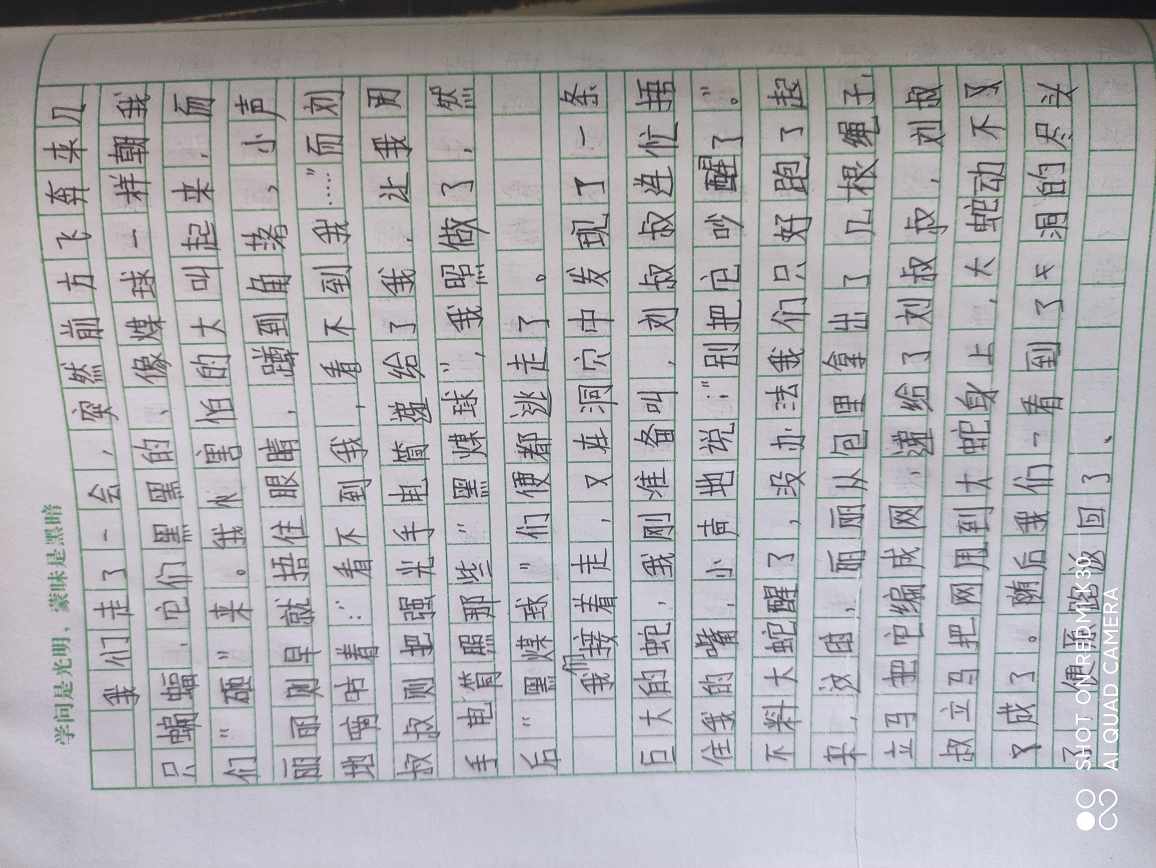 学问是光明，蒙昧是黑暗
我们走了一会，突然前方飞奔来几
只蝙蝠，它们黑黑的、像煤球一样朝我
们“砸”来。我 害怕的大叫起来，而
丽丽则早就捂住眼睛，蹲到角落，小声
地嘀咕着：“看不到我，看不到我……”而刘
叔叔则把强光手电筒递给了我，让我用
手电筒照那些“黑煤球”，我照做了，然
后“黑煤球”们便都逃走了。
我们接着走，又在洞穴中发现了一条
巨大的蛇，我刚准备叫，刘叔叔连忙捂
住我的嘴，小声地说：“别把它吵醒了。”
不料大蛇醒了，没办法我们只好跑了起
来，这时，丽丽从包里拿出了几根绳子，
立马把它编成网，递给了刘叔叔，刘叔
叔立马把网甩到大蛇身上，大蛇动不又
了成了。随后我们一看到了 洞的尽头
了，便原路返回了、
SHOT ON REDMI K30
AI QUAD CAMERA